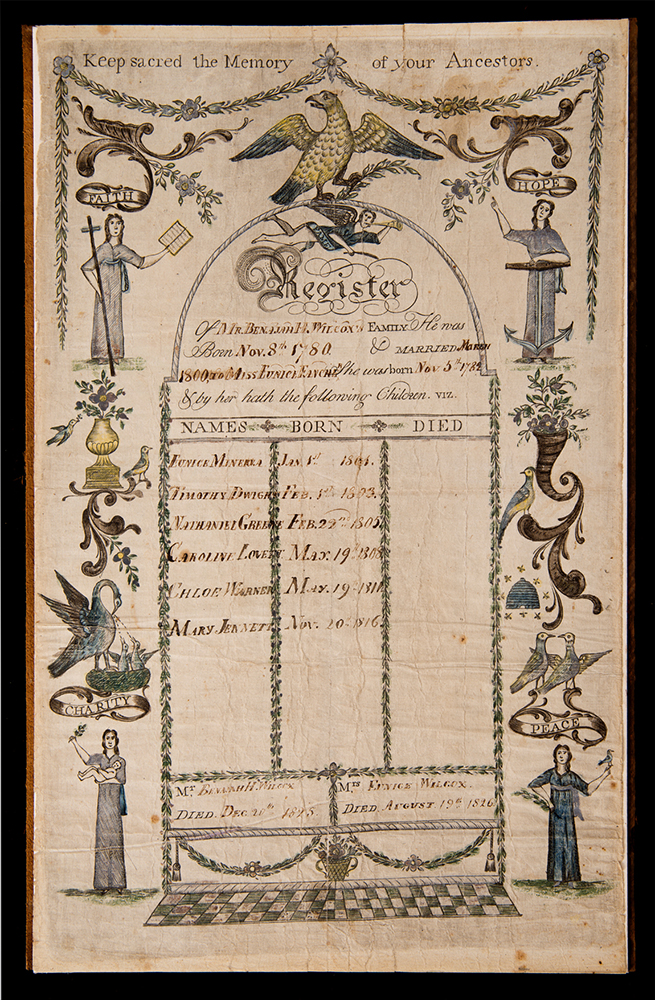 Keep sacred the Memory of your Ancestors.
FAITH
HOPE
Register
Of Mr. Benajah H. Wilcox's Family. He was
Born Nov. 8th 1780. & married March
1800, to Miss Eunice She was born Nov 5th
& by her hath the following Children. viz.
NAMES BORN DIED
Eunice Minerva Jan. 1st 1801.
Timothy Dwight Feb. 1st 1803.
Nathaniel Greene Feb. 22nd 1805.
Caroline Lovett May. 19th 1808.
Chloe Warner May. 19th 1811.
Mary Jennett Nov. 20th 1816.
CHARITY
PEACE
Mr. Benajah H. Wilcox
Died. Dec. 1845.
Mrs Eunice Wilcox.
Died. August 19th 1826.